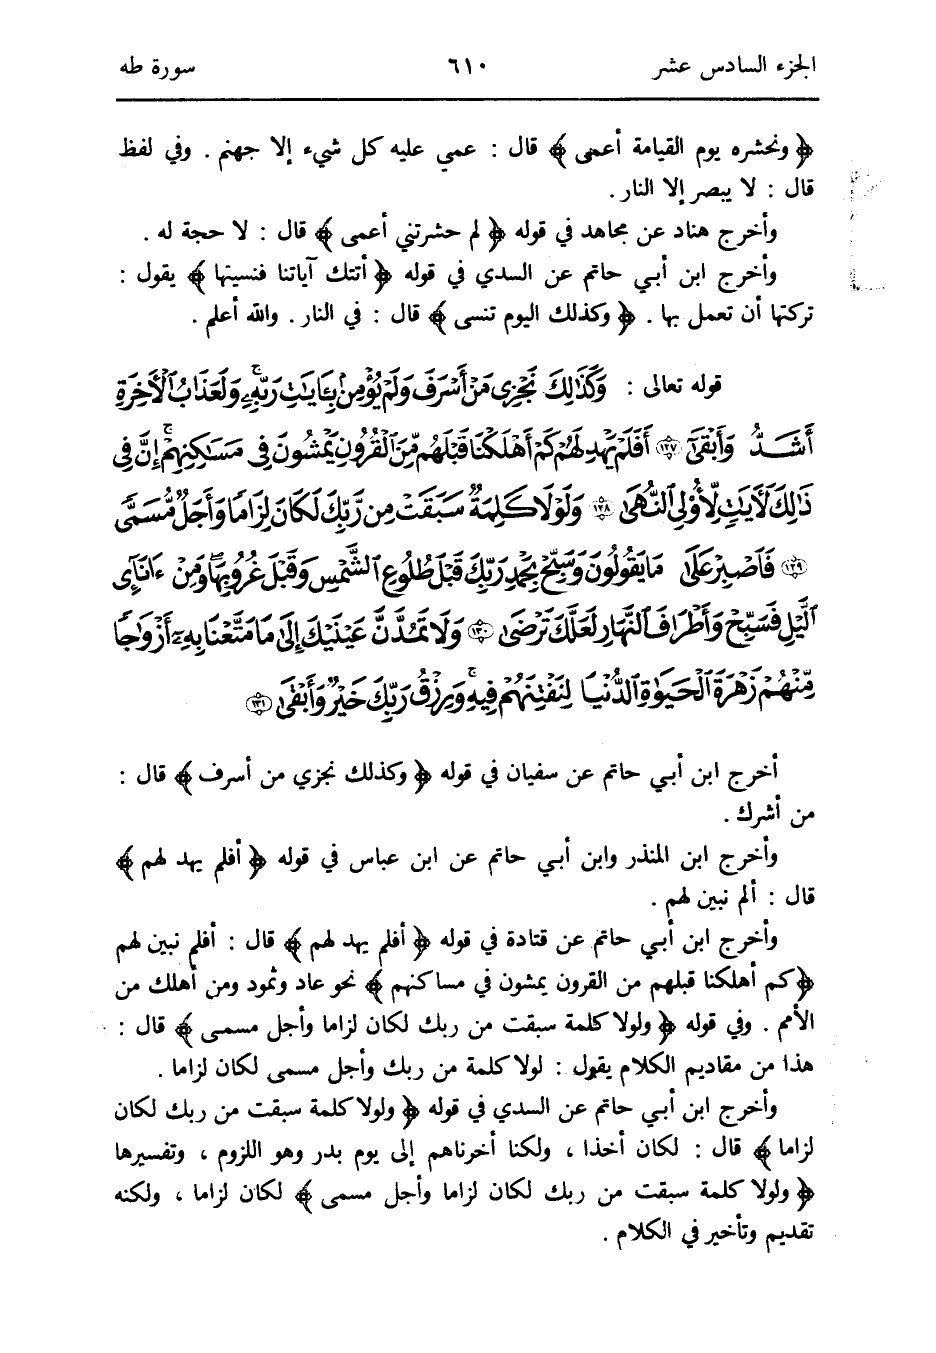 الجزء السادس عشر ٦١٠ سورة طه
﴿ ونحشره يوم القيامة أعمى ﴾ قال : عمي عليه كل شيء إلا جهنم . وفي لفظ
قال : لا يبصر إلا النار .
وأخرج هناد عن مجاهد في قوله ﴿ لم حشرتني أعمى ﴾ قال : لا حجة له .
وأخرج ابن أبي حاتم عن السدي في قوله ﴿ أتتك آياتنا فنسيتها ﴾ يقول :
تركتها أن تعمل بها . ﴿ وكذلك اليوم تنسى ﴾ قال : في النار . والله أعلم .
قوله تعالى : وَكَذَٰلِكَ نَجْزِى مَنْ أَسْرَفَ وَلَمْ يُؤْمِنۢ بِـَٔايَٰتِ رَبِّهِۦۚ وَلَعَذَابُ ٱلْأَخِرَةِ
أَشَدُّ وَأَبْقَىٰٓ ١٢٧ أَفَلَمْ يَهْدِ لَهُمْ كَمْ أَهْلَكْنَا قَبْلَهُم مِّنَ ٱلْقُرُونِ يَمْشُونَ فِى مَسَٰكِنِهِمْۗ إِنَّ فِى
ذَٰلِكَ لَأٓيَٰتٍ لِّأُو۟لِى ٱلنُّهَىٰ ١٢٨ وَلَوْلَا كَلِمَةٌ سَبَقَتْ مِن رَّبِّكَ لَكَانَ لِزَامًا وَأَجَلٌ مُّسَمًّى
١٢٩ فَٱصْبِرْ عَلَىٰ مَا يَقُولُونَ وَسَبِّحْ بِحَمْدِ رَبِّكَ قَبْلَ طُلُوعِ ٱلشَّمْسِ وَقَبْلَ غُرُوبِهَاۖ وَمِنْ ءَانَآئِ
ٱلَّيْلِ فَسَبِّحْ وَأَطْرَافَ ٱلنَّهَارِ لَعَلَّكَ تَرْضَىٰ ١٣٠ وَلَا تَمُدَّنَّ عَيْنَيْكَ إِلَىٰ مَا مَتَّعْنَا بِهِۦٓ أَزْوَٰجًا
مِّنْهُمْ زَهْرَةَ ٱلْحَيَوٰةِ ٱلدُّنْيَا لِنَفْتِنَهُمْ فِيهِۚ وَرِزْقُ رَبِّكَ خَيْرٌ وَأَبْقَىٰ ١٣١
أخرج ابن أبي حاتم عن سفيان في قوله ﴿ وكذلك نجزي من أسرف ﴾ قال :
من أشرك .
وأخرج ابن المنذر وابن أبي حاتم عن ابن عباس في قوله ﴿ أفلم يهد لهم ﴾
قال : ألم نبين لهم .
وأخرج ابن أبي حاتم عن قتادة في قوله ﴿ أفلم يهد لهم ﴾ قال : أفلم نبين لهم
﴿ كم أهلكنا قبلهم من القرون يمشون في مساكنهم ﴾ نحو عاد وثمود ومن أهلك من
الأمم . وفي قوله ﴿ ولولا كلمة سبقت من ربك لكان لزاما وأجل مسمى ﴾ قال :
هذا من مقاديم الكلام يقول : لولا كلمة من ربك وأجل مسمى لكان لزاما .
وأخرج ابن أبي حاتم عن السدي في قوله ﴿ ولولا كلمة سبقت من ربك لكان
لزاما ﴾ قال : لكان أخذا ، ولكنا أخرناهم إلى يوم بدر وهو اللزوم ، وتفسيرها
﴿ ولولا كلمة سبقت من ربك لكان لزاما وأجل مسمى ﴾ لكان لزاما ، ولكنه
تقديم وتأخير في الكلام .